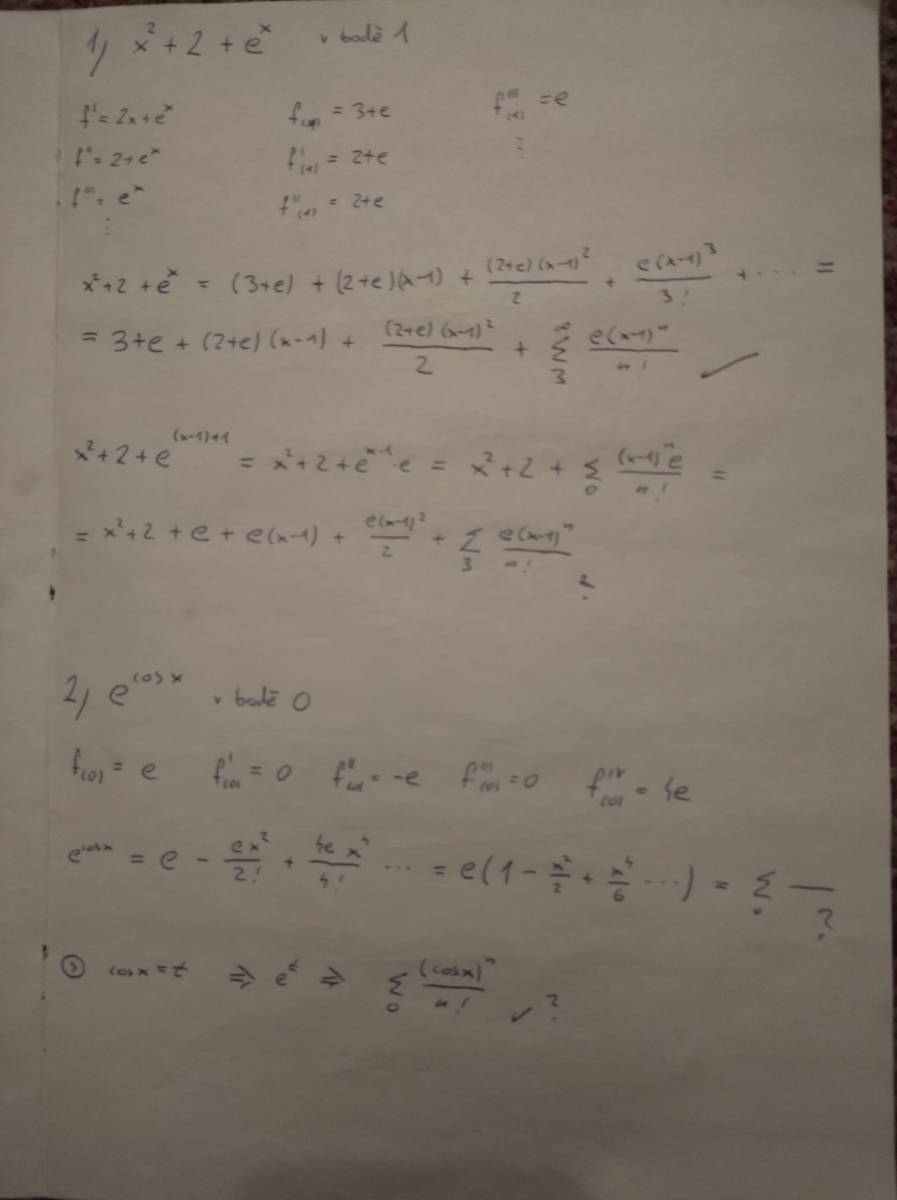 1) x² + 2 + eˣ v bodě 1
f' = 2x + eˣ f(1) = 3+e f'''(1) = e
f'' = 2 + eˣ f'(1) = 2+e ⋮
f''' = eˣ f''(1) = 2+e
⋮
x² + 2 + eˣ = (3+e) + (2+e)(x-1) + (2+e)(x-1)²/2 + e(x-1)³/3! + .... =
= 3+e + (2+e)(x-1) + (2+e)(x-1)²/2 + ∑₃^∞ e(x-1)ⁿ/n! ✓
x² + 2 + e^((x-1)+1) = x² + 2 + e^(x-1)·e = x² + 2 + ∑₀ (x-1)ⁿe/n! =
= x² + 2 + e + e(x-1) + e(x-1)²/2 + ∑₃ e(x-1)ⁿ/n! ?
2) e^(cos x) v bodě 0
f(0) = e f'(0) = 0 f''(0) = -e f'''(0) = 0 f^IV(0) = 4e
e^(cos x) = e - ex²/2! + 4e x⁴/4! ... = e(1 - x²/2 + x⁴/6 ...) = ∑₀ — ?
cos x = t ⇒ eᵗ ⇒ ∑₀ (cos x)ⁿ/n! ✓ ?